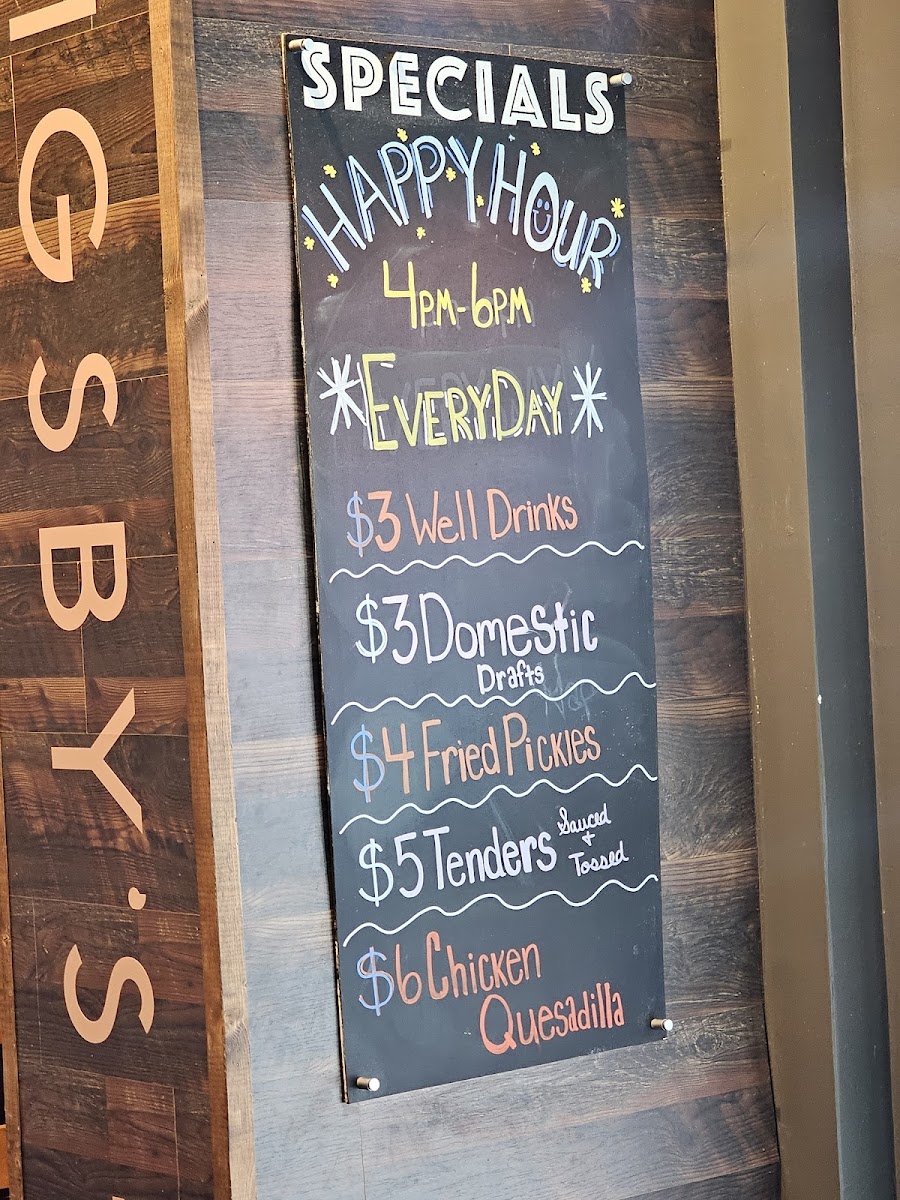 IGSBY'S
SPECIALS
HAPPY HOUR
4PM-6PM
*EVERYDAY*
$3 Well Drinks
$3 Domestic
Drafts
$4 Fried Pickles
$5 Tenders Sauced
+
Tossed
$6 Chicken
Quesadilla